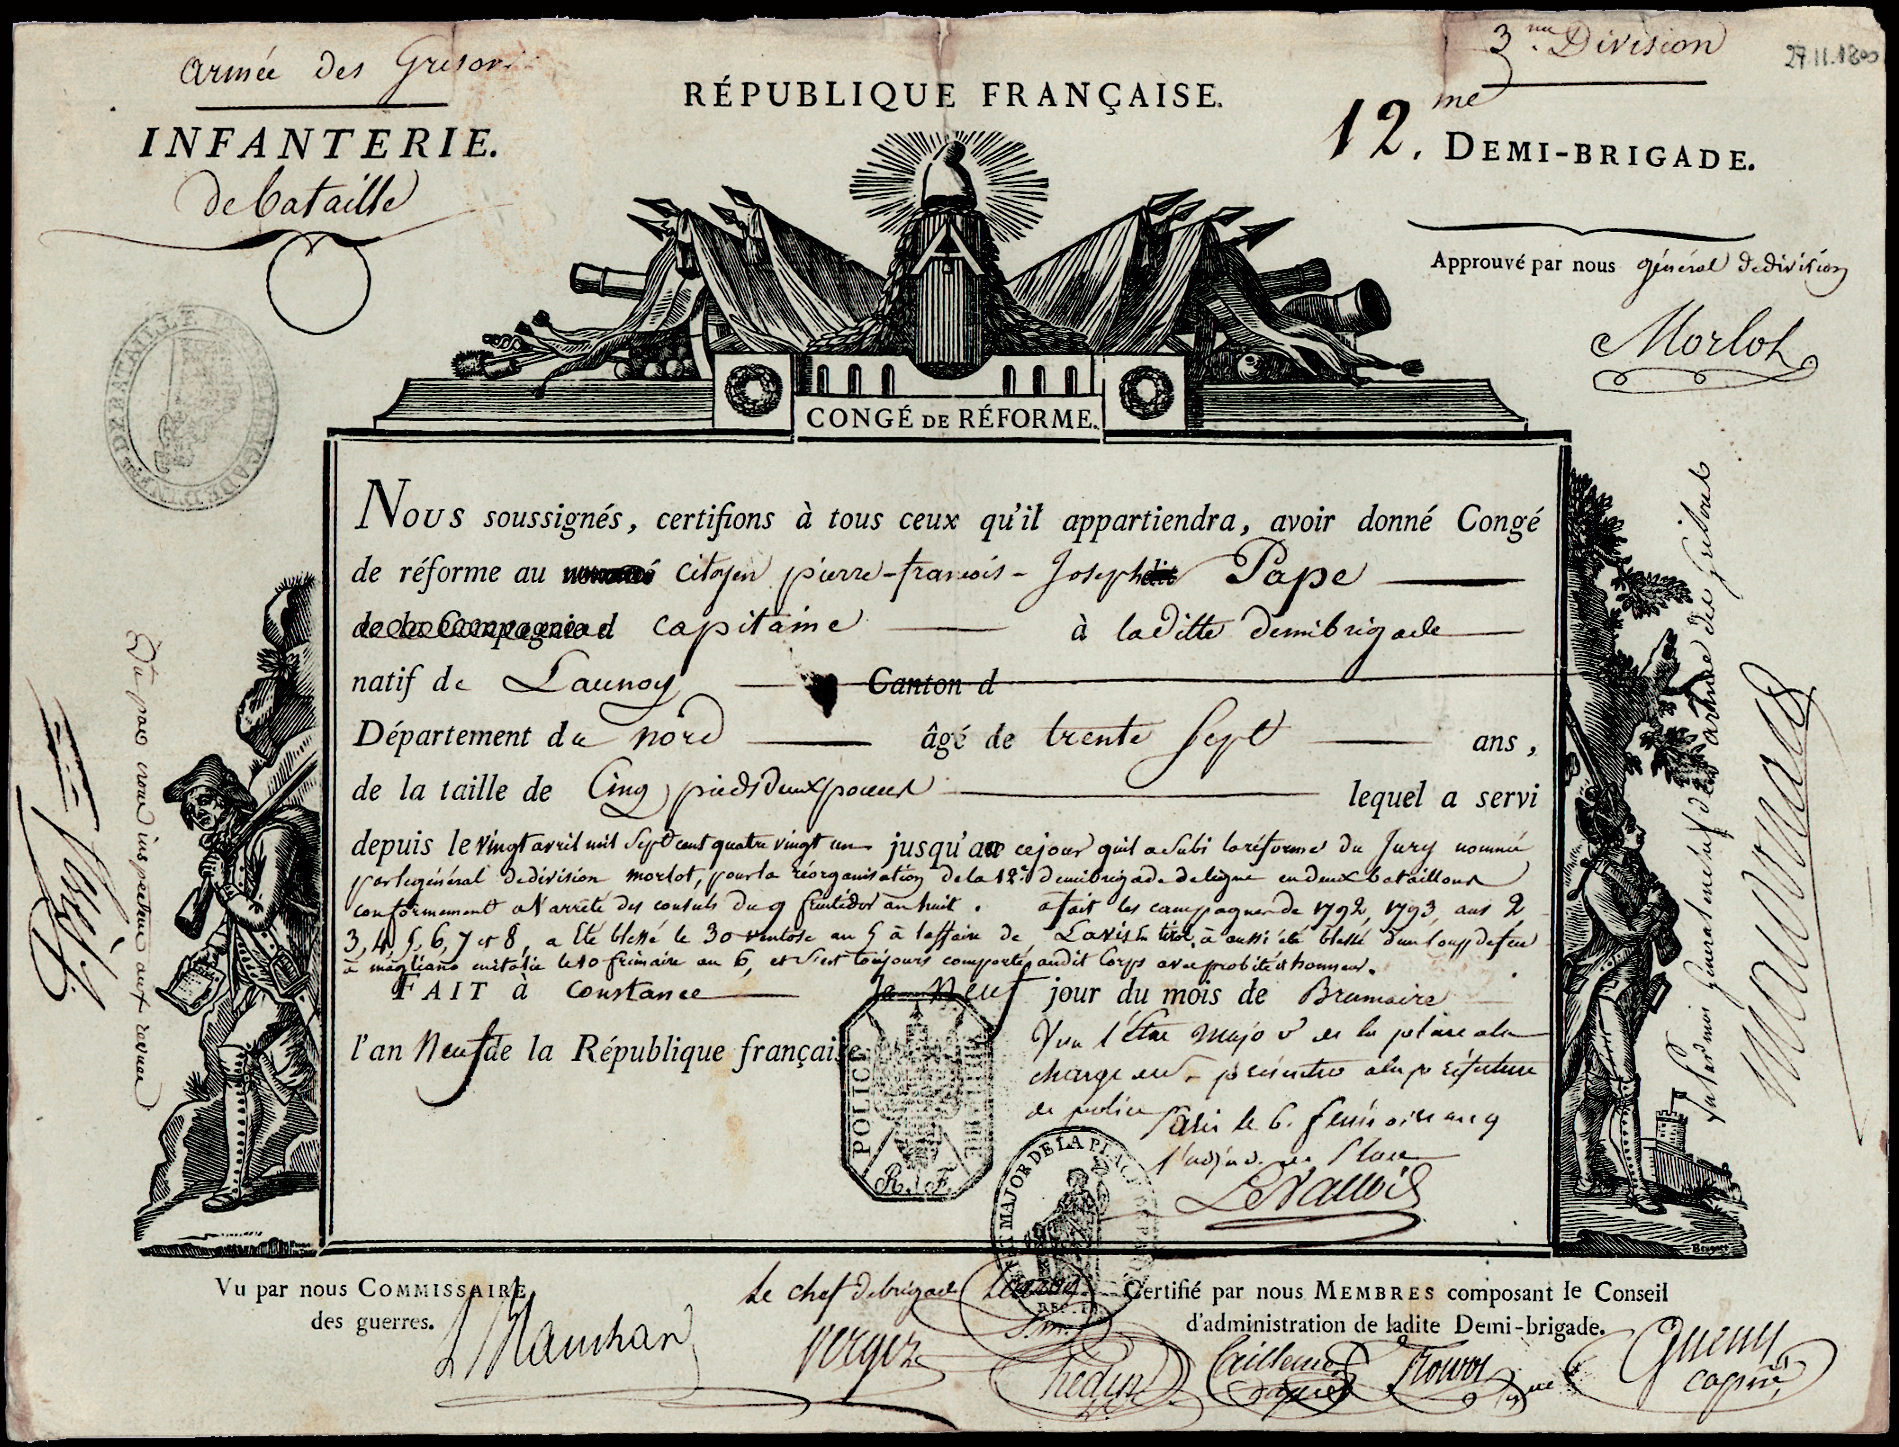 Armée des Grisons
3me. Division
27.11.1800
RÉPUBLIQUE FRANÇAISE.
INFANTERIE.
12.me DEMI-BRIGADE.
de bataille
Approuvé par nous général de division
Morlot
CONGÉ DE RÉFORME.
Nous soussignés, certifions à tous ceux qu'il appartiendra, avoir donné Congé
de réforme au citoyen pierre-francois-Joseph Pape
de la Compagnie d capitaine à laditte demibrigade
natif de Launoy Canton d
Département du nord âgé de trente Sept ans,
de la taille de Cinq pieds deux pouces lequel a servi
depuis le vingt avril mil Sept cent quatre vingt un jusqu'au ce jour qu'il a subi la réforme du Jury nommé
par le général de division morlot, pour la réorganisation de la 12e demibrigade de ligne en deux bataillons
conformement a l'arrêté des consuls du 9 fructidor an huit. a fait les campagnes de 1792, 1793, ans 2
3, 4, 5, 6, 7 et 8, a été blessé le 30 ventose an 5 à l'affaire de Lavis en tirol, à aussi été blessé d'un Coup de feu
à magliano en italie le 10 frimaire an 6, et s'est toujours comporté audit Corps avec probité et honneur.
FAIT à Constance le Neuf jour du mois de Brumaire
l'an Neuf de la République française
Vu à l'État Major de la place a la
charge de se présenter a la préfecture
de police Paris le 6. frimaire an 9
l'adjud. de Place
Levallois
POLICE MILITAIRE
R. F.
ETAT MAJOR DE LA PLACE DE PARIS
REP. F.
Vu par nous COMMISSAIRE
des guerres.
Le chef de brigade
Verger
Certifié par nous MEMBRES composant le Conseil
d'administration de ladite Demi-brigade.
Vu par nous inspecteur aux revues
Vu par moi Général en chef de l'armée des Grisons
Macdonald